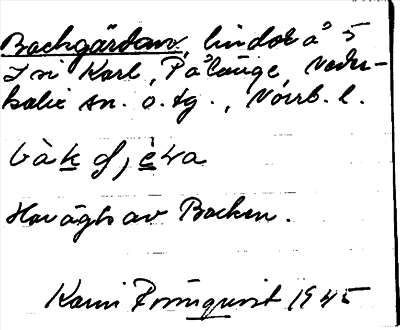 Backgärdan, lindor å 5
Isi Karl, Pålänge, Neder-
kalix sn. o. tg., Norrb. l.
Har ägts av Backen.
Karin Rönnqvist 1945